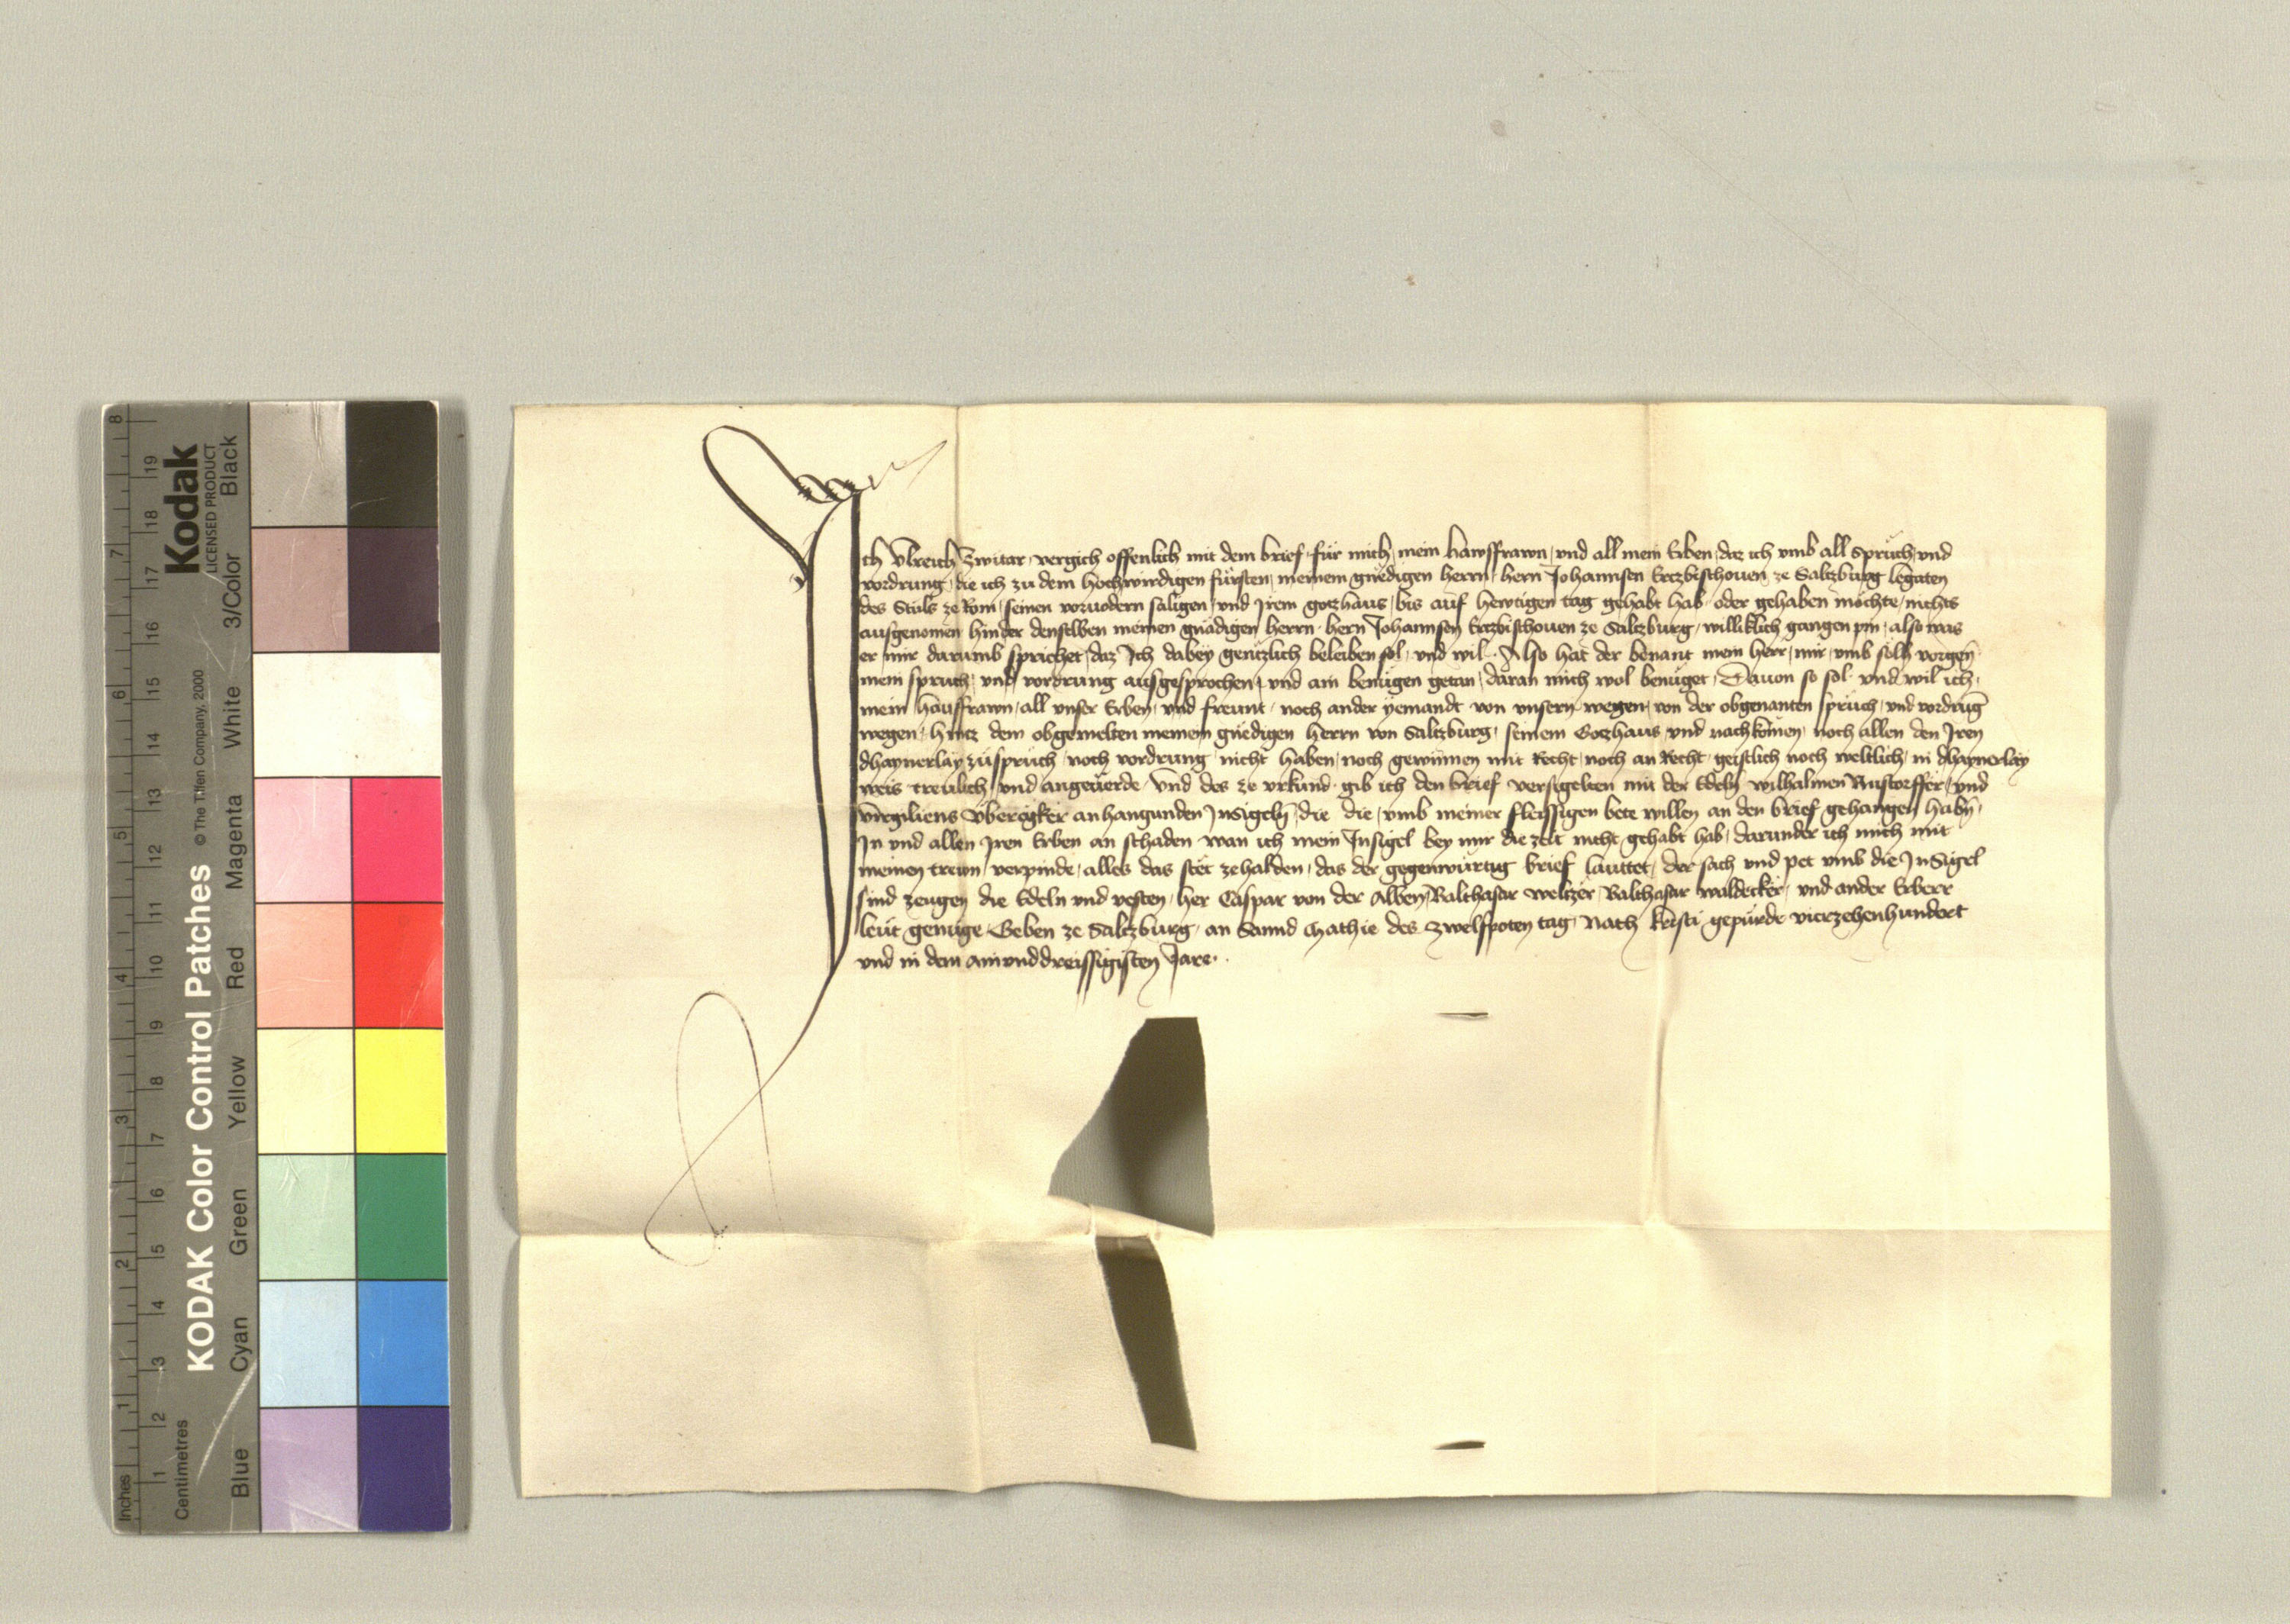 Ich Ulreich Zwitar vergich offenlich mit dem brief für mich mein hawsfrawn und all mein Erben daz ich umb all sprüch und
vordrung die ich zu dem hochwirdigen fürsten meinem gnëdigen herrn hern Johannsen Ertzbischouen ze Saltzburg legaten
des Stuls ze Rom seinen voruodern säligen und Irem gotzhaus bis auf hewtigen tag gehabt hab oder gehaben möchte nichts
ausgenomen hinder denselben meinen gnädigen herrn hern Johannsen Ertzbischouen ze Saltzburg williklich gangen pin also was
er mir darumb sprichet daz Ich dabey gentzlich beleiben sol und wil Also hat der benant mein herr mir umb sölh vorgen
mein sprüch und vordrung ausgesprochen und ain benügen getan daran mich wol benüget Dauon so sol und wil ich
mein hausfrawn all unser Erben und freunt noch ander yemandt von unsern wegen von der obgenanten sprüch und vordrug
wegen hintz dem obgemelten meinem gnëdigen herrn von Saltzburg seinem Gotzhaus und nachkömen noch allen den Iren
dhaynerlay zuspruch noch vordrung nicht haben noch gewinnen mit Recht noch an Recht geistlich noch weltlich in dhaynerlay
weis treulich und angeuërde Und des ze urkund gib ich den brief versigelten mit der Edeln wilhalmen Rustorffer und
virgiliens Überägker anhangunden Insigeln die die umb meiner fleissigen bete willen an den brief gehangen habn
In und allen Iren Erben an schaden wan ich mein Insigel bey mir die zeit nicht gehabt hab darunder ich mich mit
meinen trewn verpinde alles das stët zehalden das der gegenwürtig brief lauttet der sach und pet umb die InSigel
sind zeugen die Edeln und vesten her Caspar von der Alben Balthasar weltzer Balthasar waldecker und ander Erberr
leüt genuge Geben ze Saltzburg an Sannd Mathie des zwelfpoten tag Nach kristi gepürde vierzehenhundert
und in dem ainunddreissigisten Jare
KODAK Color Control Patches
© The Tiffen Company, 2000
Kodak
LICENSED PRODUCT
Inches
1 2 3 4 5 6 7 8
Centimetres
1 2 3 4 5 6 7 8 9 10 11 12 13 14 15 16 17 18 19
Blue Cyan Green Yellow Red Magenta White 3/Color Black